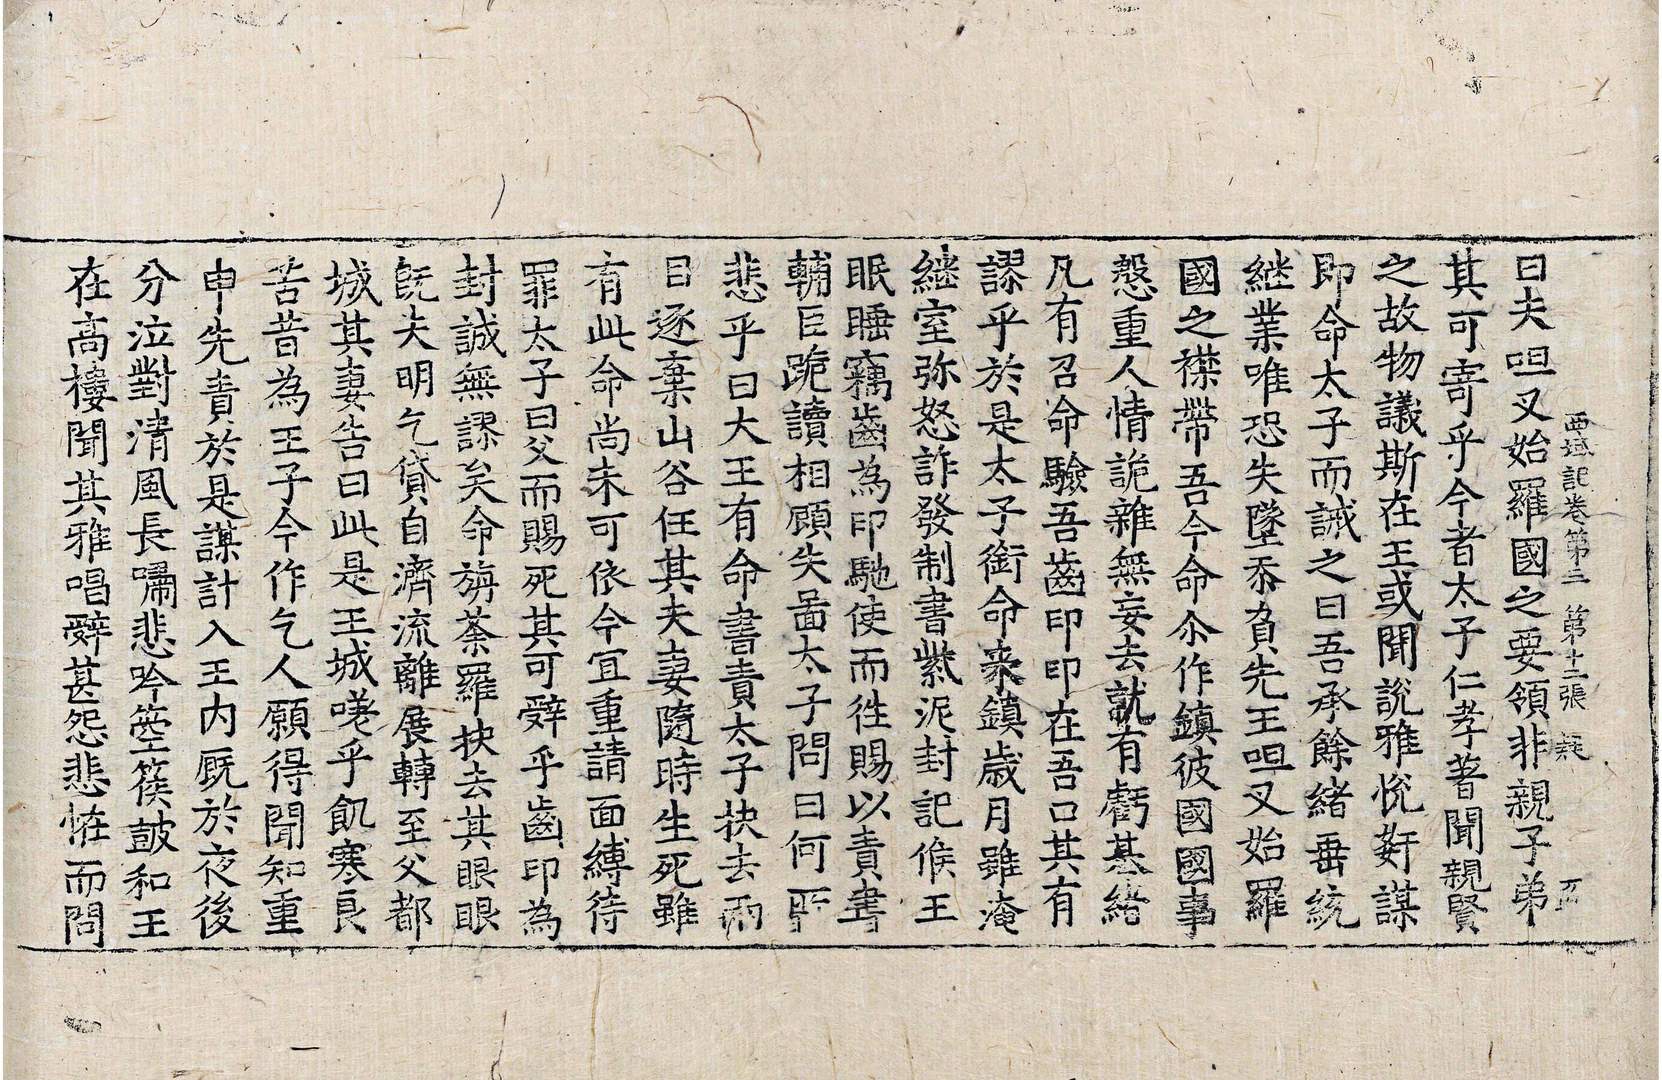 西域記卷第三 第十二張 疑
曰夫呾叉始羅國之要領非親子弟
其可寄乎今者太子仁孝著聞親賢
之故物議斯在王或聞說雅悅姧謀
即命太子而誡之曰吾承餘緒垂統
継業唯恐失墜忝負先王呾叉始羅
國之襟帶吾今命尒作鎮彼國國事
慇重人情詭雜無妄去就有虧基緒
凡有召命驗吾齒印印在吾口其有
謬乎於是太子銜命来鎮歲月雖淹
継室弥怒詐發制書紫泥封記候王
眠睡竊齒為印馳使而往賜以責書
輔臣跪讀相顧失啚太子問曰何所
悲乎曰大王有命書責太子抉去兩
目逐棄山谷任其夫妻隨時生死雖
有此命尚未可依今宜重請面縛待
罪太子曰父而賜死其可辤乎齒印為
封誠無謬矣命旃荼羅抉去其眼眼
旣失明乞貸自濟流離展轉至父都
城其妻告曰此是王城嗟乎飢寒良
苦昔為王子今作乞人願得聞知重
申先責於是謀計入王内厩於夜後
分泣對清風長嘯悲吟箜篌鼓和王
在高樓聞其雅唱辤甚怨悲恠而問